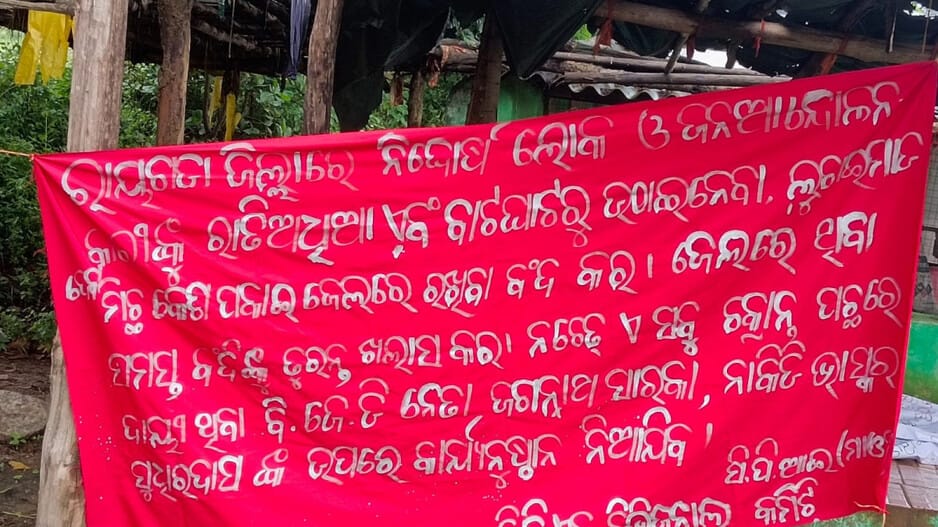 ରାୟଗଡା ଜିଲ୍ଲାରେ ନିର୍ଦ୍ଦୋର୍ଷ ଲୋକ ଓ ଜନଆନ୍ଦୋଳନ
କାରୀଙ୍କୁ ରାତିଅଧିଆ ଏବଂ ବାଟଘାଟରୁ ଉଠାଇନେବା,
ମିଚ୍ଛ କେଶ ପକାଇ ଜେଲରେ ରଖିବା ବଂଦ କର। ଜେଲରେ ଥିବା
ସମସ୍ତ ବଂଦିଙ୍କୁ ତୁରନ୍ତ ଖଲାସ କର। ନଚେତ୍ ଏ ସବୁ ଚକ୍ରାନ୍ତ ପଚ୍ଛରେ
ଦାୟୀ ଥିବା ବି.ଜେ.ଡି ନେତା ଜଗନ୍ନାଥ ସାରକା, ନାକିଡି ଭାସ୍କର
ସୁଧିରଦାସ ଙ୍କ ଉପରେ କାର୍ଯ୍ୟନୁଷ୍ଠାନ ନିଆଯିବ।
ସି.ପି.ଆଇ(ମାଓ
କମିଟି